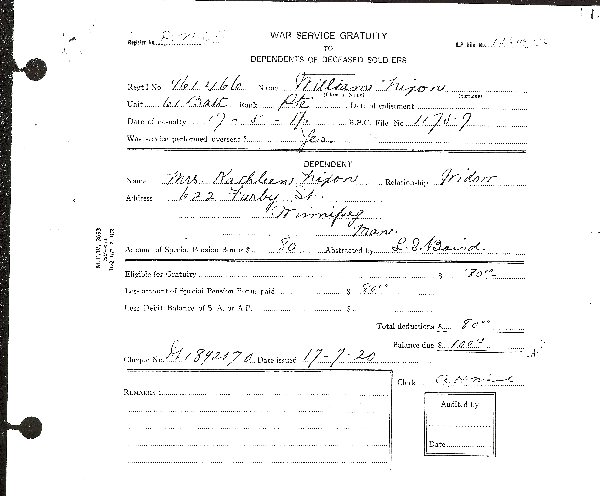 WAR SERVICE GRATUITY
TO
DEPENDENTS OF DECEASED SOLDIERS
Register No.
Regt'l No. 461466 Name William Nixon
(Christian Name) (Surname)
Unit 61 Batt Rank Pte Date of enlistment
Date of casualty 17-5-16 B.P.C. File No. 11757
Was service performed overseas? Yes
DEPENDENT
Name Mrs Kathleen Nixon Relationship Widow
Address 622 Furby St.
Winnipeg
Man.
Amount of Special Pension Bonus $ 80 Abstracted by
Eligible for Gratuity $ 180.00
Less amount of Special Pension Bonus paid $ 80.00
Less Debit Balance of S. A. or A.P. $
Total deductions $ 80.00
Balance due $ 100.00
Cheque No. Date issued 17-7-20
Clerk
REMARKS:
Audited by
Date